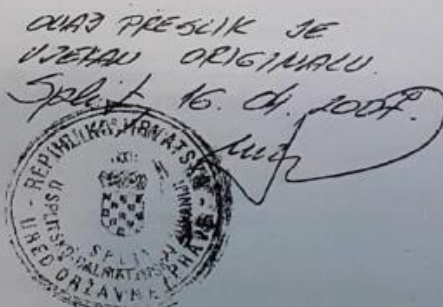 OVAJ PRESLIK JE
VJERAN ORIGINALU.
Split 16. 04. 2007.
REPUBLIKA HRVATSKA
URED DRŽAVNE UPRAVE
U SPLITSKO-DALMATINSKOJ ŽUPANIJI
SPLIT